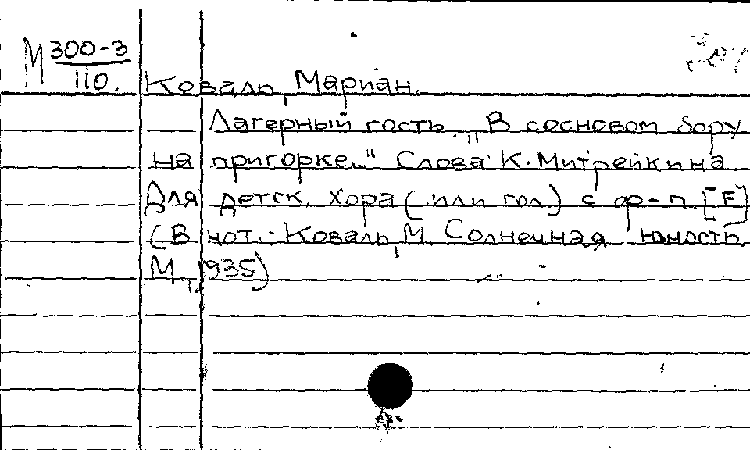 М 300-3
110.
Коваль, Мариан.
Лагерный гость. „В сосновом бору
на пригорке..." Слова К. Митрейкина
Для детск. хора (или гол.) с ф-п. [F]
(В нот.: Коваль, М. Солнечная юность.
М., 1935)